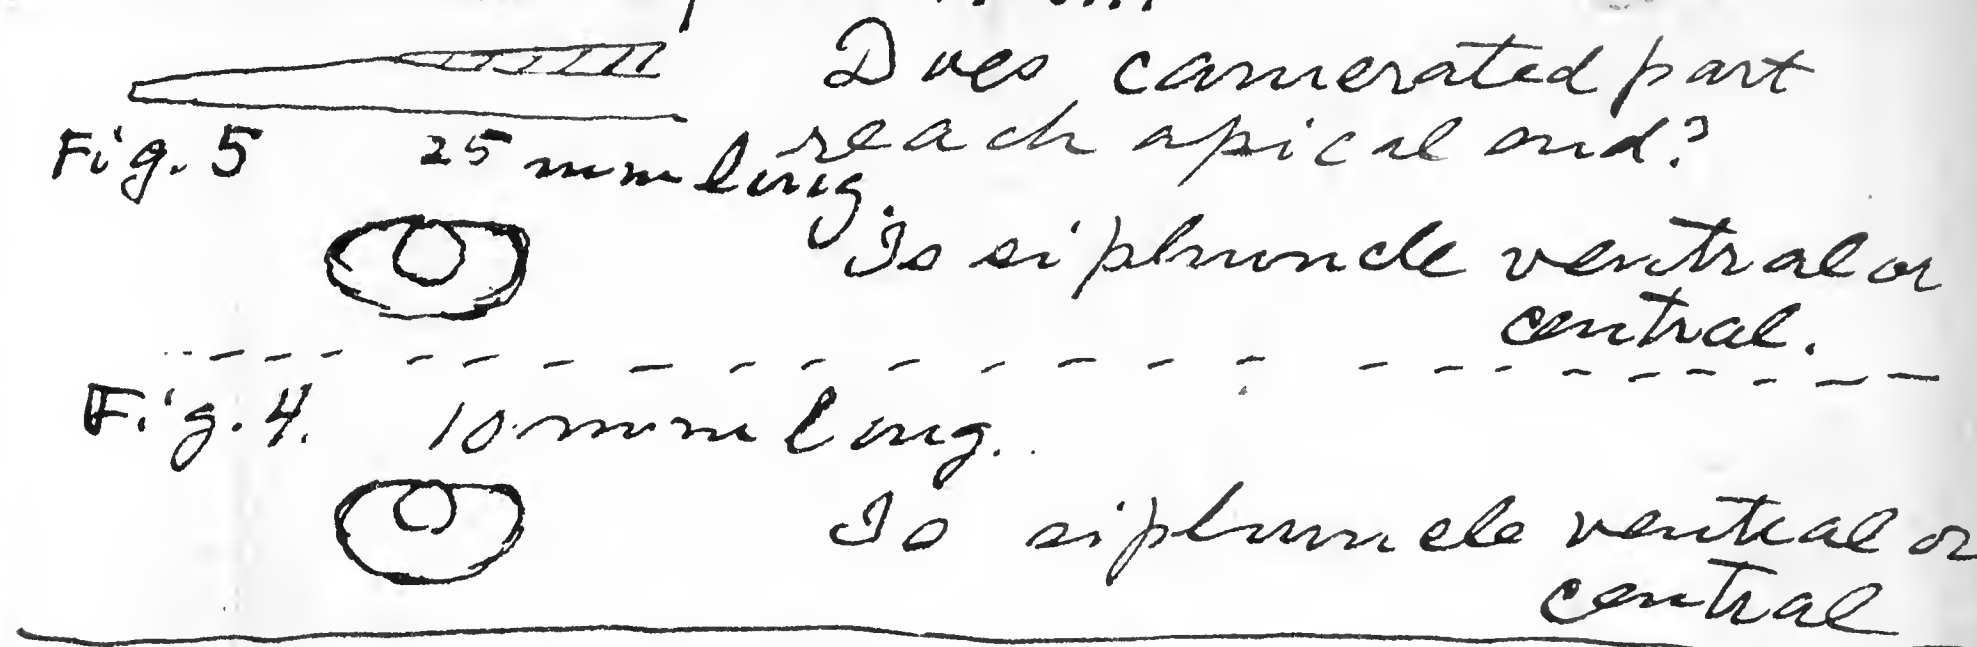 Does camerated part
reach apical end?
Fig. 5 25 mm long.
Is siphuncle ventral or
central.
Fig. 4. 10 mm long.
Is siphuncle ventral or
central